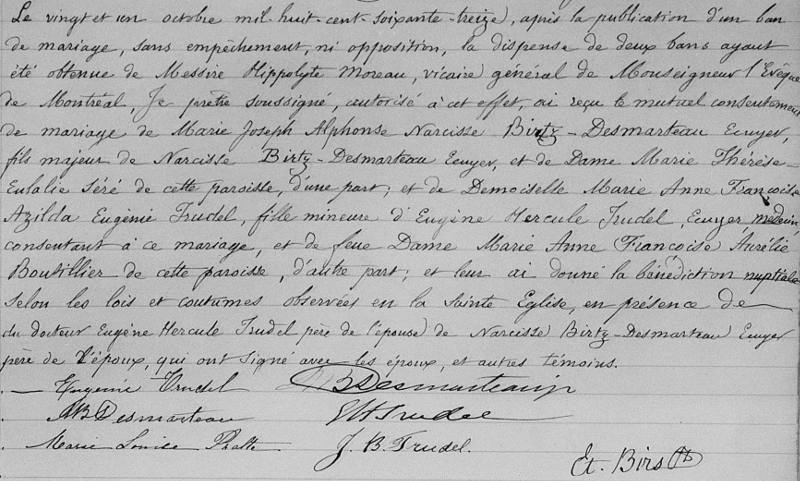 Le vingt et un octobre mil-huit-cent-soixante-treize, après la publication d'un ban
de mariage, sans empêchement, ni opposition, la dispense de deux bans ayant
été obtenue de Messire Hippolyte Moreau, vicaire général de Monseigneur l'Evêque
de Montréal, Je prêtre soussigné, autorisé à cet effet, ai reçu le mutuel consentement
de mariage de Marie Joseph Alphonse Narcisse Birtz-Desmarteau Ecuyer,
fils majeur de Narcisse Birtz-Desmarteau Ecuyer, et de Dame Marie Thérèse-
Eulalie Séré de cette paroisse, d'une part; et de Demoiselle Marie Anne Françoise
Azilda Eugénie Trudel, fille mineure d'Eugène Hercule Trudel, Ecuyer médecin,
consentant à ce mariage, et de feue Dame Marie Anne Françoise Aurélie
Boutillier de cette paroisse, d'autre part; et leur ai donné la bénédiction nuptiale
selon les lois et coutumes observées en la Sainte Eglise, en présence de
du docteur Eugène Hercule Trudel père de l'épouse, de Narcisse Birtz-Desmarteau Ecuyer
père de l'époux, qui ont signé avec les époux, et autres témoins.
Eugénie Trudel Desmarteau
Desmarteau EH Trudel
Marie Louise J. B. Trudel.
Et. Birs